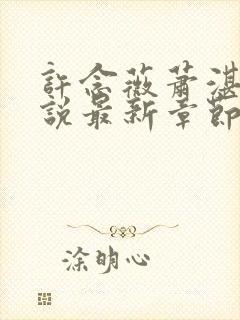 許念薇蕭湛
說最新章節
涂明心